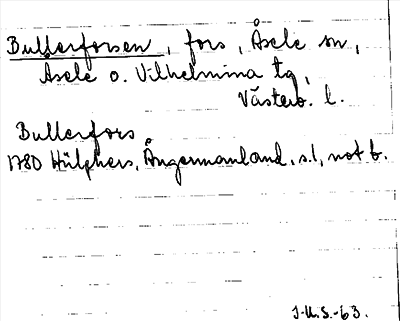 Bullerforsen, fors, Åsele sn,
Åsele o. Vilhelmina tg,
Västerb. l.
Bullerfors
1780 Hülphers, Ångermanland, s. 1, not b.
J.U.S.-63.